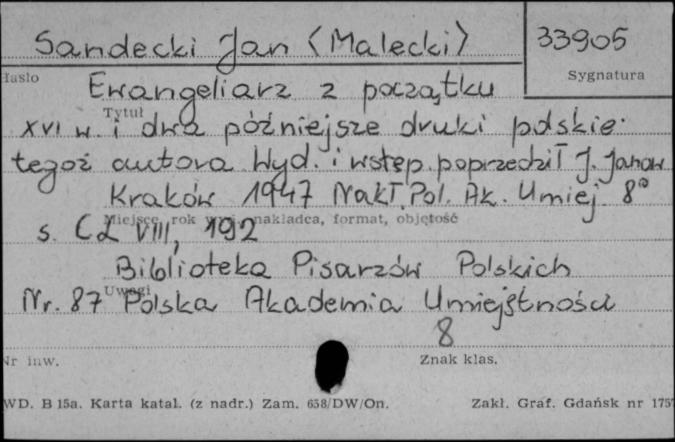 Sandecki Jan (Malecki) 33905
Hasło Sygnatura
Ewangeliarz z początku
Tytuł
XVI w. i dwa późniejsze druki polskie
tegoż autora. Wyd. i wstęp. poprzedził J. Janow
Kraków 1947 Nakł. Pol. Ak. Umiej. 8°
Miejsce, rok nakładca, format, objętość
s. CLVIII, 192
Biblioteka Pisarzów Polskich
Uwagi
Nr. 87 Polska Akademia Umiejętności
8
Nr inw. Znak klas.
WD. B 15a. Karta katal. (z nadr.) Zam. 658/DW/On. Zakł. Graf. Gdańsk nr 175